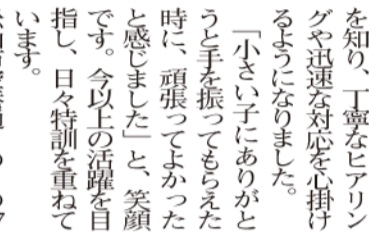 を知り、丁寧なヒアリン
グや迅速な対応を心掛け
るようになりました。
「小さい子にありがと
うと手を振ってもらえた
時に、頑張ってよかった
と感じました」と、笑顔
です。今以上の活躍を目
指し、日々特訓を重ねて
います。